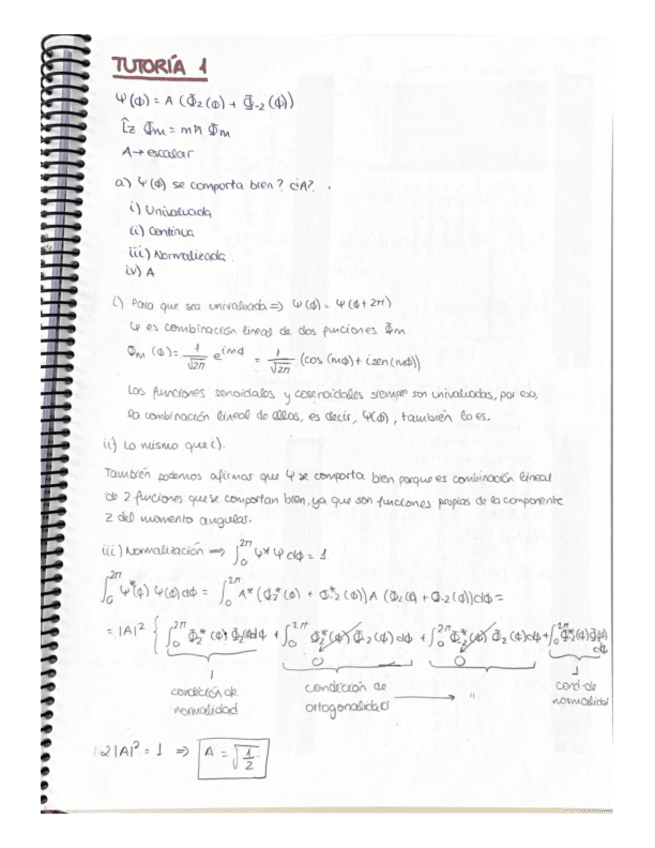 TUTORÍA 1
Ψ(ϕ) = A (Φ₂(ϕ) + Φ₋₂(ϕ))
L̂z Φm = mħ Φm
A → escalar
a) Ψ(ϕ) se comporta bien? ¿A?
i) Univaluada
ii) Continua
iii) Normalizada.
iv) A
i) Para que sea univaluada ⇒ Ψ(ϕ) = Ψ(ϕ + 2π)
Ψ es combinación lineal de dos funciones Φm
Φm (ϕ) = 1/√2π e^{imϕ} = 1/√2π (cos (mϕ) + i sen (mϕ))
Las funciones senoidales y cosenoidales siempre son univaluadas, por eso,
la combinación lineal de ellas, es decir, Ψ(ϕ), también lo es.
ii) Lo mismo que i).
También podemos afirmar que Ψ se comporta bien porque es combinación lineal
de 2 funciones que se comportan bien, ya que son funciones propias de la componente
z del momento angular.
iii) Normalización ⇒ ∫₀^{2π} Ψ* Ψ dϕ = 1
∫₀^{2π} Ψ*(ϕ) Ψ(ϕ) dϕ = ∫₀^{2π} A* (Φ₂*(ϕ) + Φ₋₂*(ϕ)) A (Φ₂(ϕ) + Φ₋₂(ϕ)) dϕ =
= |A|² { ∫₀^{2π} Φ₂*(ϕ) Φ₂(ϕ) dϕ + ∫₀^{2π} Φ₂*(ϕ) Φ₋₂(ϕ) dϕ + ∫₀^{2π} Φ₋₂*(ϕ) Φ₂(ϕ) dϕ + ∫₀^{2π} Φ₋₂*(ϕ) Φ₋₂(ϕ) dϕ
1 0 0 1
condición de normalidad condición de ortogonalidad → " cond. de normalidad
2|A|² = 1 ⇒ A = √1/2